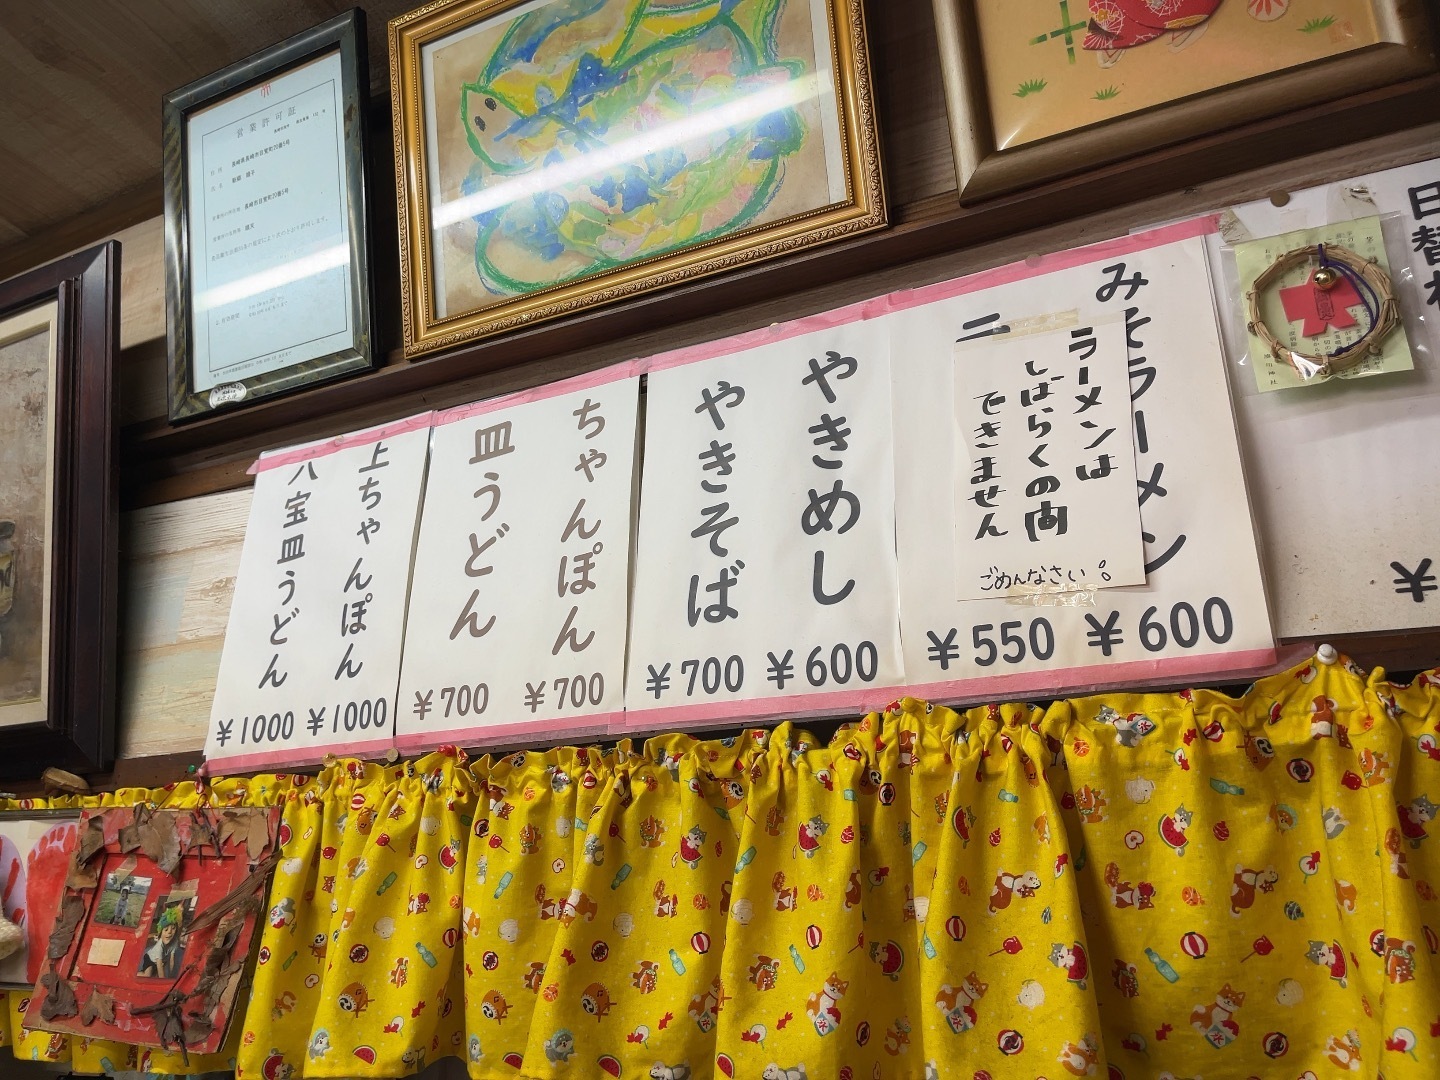 営業許可証
みそラーメン
¥600
¥550
ラーメンは
しばらくの間
できません
ごめんなさい。
やきめし
¥600
やきそば
¥700
ちゃんぽん
¥700
皿うどん
¥700
上ちゃんぽん
¥1000
八宝皿うどん
¥1000
日替わ
¥